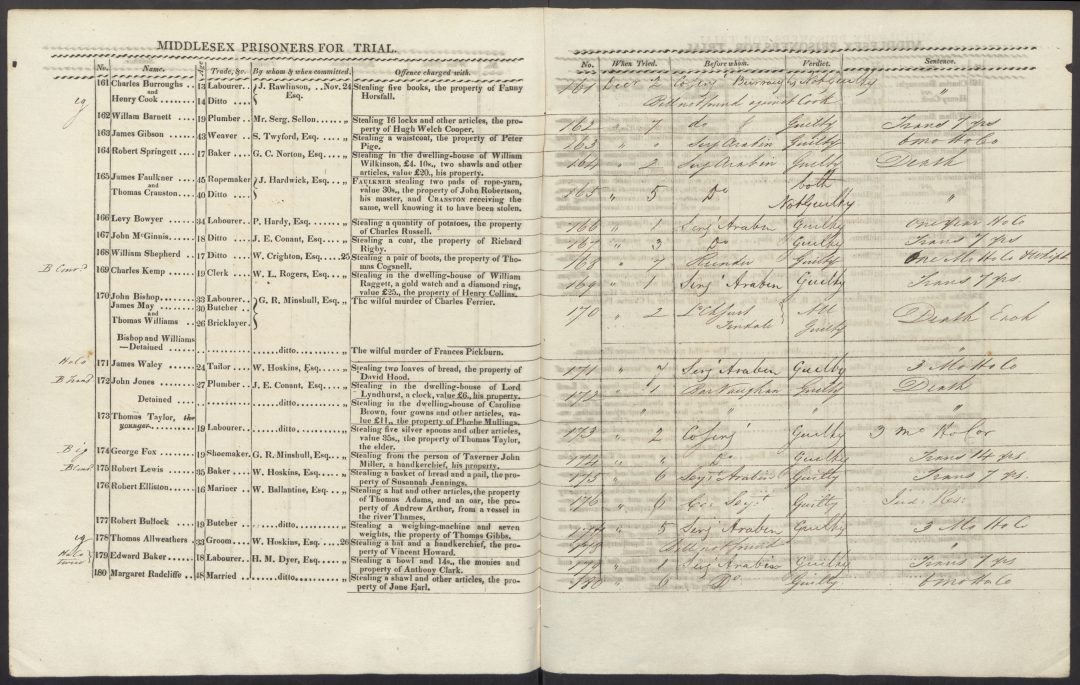 MIDDLESEX PRISONERS FOR TRIAL.
No. Name. Age Trade, &c. By whom & when committed. Offence charged with.
161 Charles Burroughs 13 Labourer.. J. Rawlinson, ..Nov. 24 Stealing five books, the property of Fanny
and Esq. Horsfall.
Henry Cook 14 Ditto
162 Willam Barnett 19 Plumber Mr. Serg. Sellon „ Stealing 16 locks and other articles, the pro-
perty of Hugh Welch Cooper.
163 James Gibson 43 Weaver S. Twyford, Esq. „ Stealing a waistcoat, the property of Peter
Pige.
164 Robert Springett 17 Baker G. C. Norton, Esq. „ Stealing in the dwelling-house of William
Wilkinson, £4. 10s., two shawls and other
articles, value £20., his property.
165 James Faulkner 45 Ropemaker J. Hardwick, Esq. „ FAULKNER stealing two pads of rope-yarn,
and value 30s., the property of John Robertson,
Thomas Crauston 40 Ditto his master, and CRANSTON receiving the
same, well knowing it to have been stolen.
166 Levy Bowyer 34 Labourer P. Hardy, Esq. „ Stealing a quantity of potatoes, the property
of Charles Russell.
167 John McGinnis 18 Ditto J. E. Conant, Esq. „ Stealing a coat, the property of Richard
Rigby.
168 William Shepherd 17 Ditto W. Crighton, Esq. 25 Stealing a pair of boots, the property of Tho-
mas Cogsnell.
169 Charles Kemp 19 Clerk W. L. Rogers, Esq. „ Stealing in the dwelling-house of William
Raggett, a gold watch and a diamond ring,
value £25., the property of Henry Collins.
170 John Bishop 33 Labourer G. R. Minshull, Esq. „ The wilful murder of Charles Ferrier.
James May 30 Butcher
and
Thomas Williams 26 Bricklayer
Bishop and Williams
—Detained ditto „ The wilful murder of Frances Pickburn.
171 James Waley 24 Tailor W. Hoskins, Esq. „ Stealing two loaves of bread, the property of
David Hood.
172 John Jones 27 Plumber J. E. Conant, Esq. „ Stealing in the dwelling-house of Lord
Lyndhurst, a clock, value £6., his property.
Detained ditto „ Stealing in the dwelling-house of Caroline
Brown, four gowns and other articles, va-
lue £11., the property of Phœbe Mullings.
173 Thomas Taylor, the
younger 19 Labourer ditto „ Stealing five silver spoons and other articles,
value 35s., the property of Thomas Taylor,
the elder.
174 George Fox 19 Shoemaker G. R. Minshull, Esq. „ Stealing from the person of Taverner John
Miller, a handkerchief, his property.
175 Robert Lewis 35 Baker W. Hoskins, Esq. „ Stealing a basket of bread and a pail, the pro-
perty of Susannah Jennings.
176 Robert Elliston 16 Mariner W. Ballantine, Esq. „ Stealing a hat and other articles, the property
of Thomas Adams, and an oar, the property
of Andrew Arthur, from a vessel in
the river Thames.
177 Robert Bullock 19 Butcher ditto „ Stealing a weighing-machine and seven
weights, the property of Thomas Gibbs.
178 Thomas Allweathers 33 Groom W. Hoskins, Esq. 26 Stealing a hat and a handkerchief, the pro-
perty of Vincent Howard.
179 Edward Baker 18 Labourer H. M. Dyer, Esq. „ Stealing a bowl and 14s., the monies and
property of Anthony Clark.
180 Margaret Radcliffe 48 Married ditto „ Stealing a shawl and other articles, the pro-
perty of Jane Earl.
No. When Tried. Before whom. Verdict. Sentence.
161 2 Burroughs Not Guilty „
Bill not found against Cook
162 „ 7 do Guilty Trans 7 yrs
163 „ „ Serj Arabin Guilty 6 mo Ho Co
164 „ 2 Serj Arabin Guilty Death
165 „ 5 Do both „
Not Guilty
166 „ 1 Serj Arabin Guilty One year Ho Co
167 „ 3 Do Guilty Trans 7 yrs
168 „ 7 Guilty One Mo Ho Co
169 „ 1 Serj Arabin Guilty Trans 7 yrs.
170 „ 2 Tindall All Guilty Death
171 „ 7 Serj Arabin Guilty 3 Mo Ho Co
172 „ 1 Vaughan Guilty Death
„ „ „ „
173 „ 2 Co Serj Guilty 3 mo
174 „ „ Do Guilty Trans 14 yrs
175 „ 6 Serj Arabin Guilty Trans 7 yrs.
176 Guilty
177 „ 5 Serj Arabin Guilty 3 Mo Ho Co
178 Bill not found „
179 „ 1 Serj Arabin Guilty Trans 7 yrs
180 „ 6 Do Guilty 6 mo Ho Co